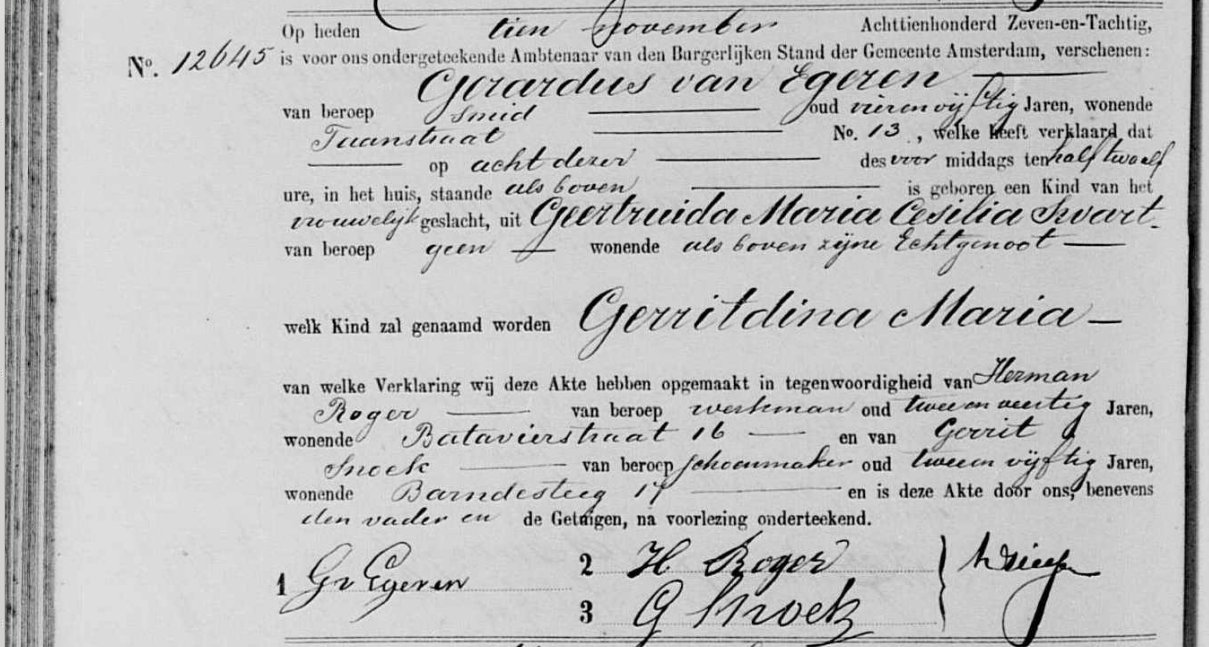 Op heden tien November Achttienhonderd Zeven-en-Tachtig,
No. 12645 is voor ons ondergeteekende Ambtenaar van den Burgerlijken Stand der Gemeente Amsterdam, verschenen:
Gerardus van Egeren
van beroep Smid oud vierenvijftig Jaren, wonende
No. 13, welke heeft verklaard dat
op acht dezer des voor middags ten half twaalf
ure, in het huis, staande als boven is geboren een Kind van het
vrouwelijk geslacht, uit Geertruida Maria Cesilia Swart
van beroep geen wonende als boven zijne Echtgenoot
welk Kind zal genaamd worden Gerritdina Maria
van welke Verklaring wij deze Akte hebben opgemaakt in tegenwoordigheid van Herman
Roger van beroep werkman oud tweeenveertig Jaren,
wonende Batavierstraat 16 en van Gerrit
Snoek van beroep schoenmaker oud tweeenvijftig Jaren,
wonende Barndesteeg 17 en is deze Akte door ons, benevens
den vader en de Getuigen, na voorlezing onderteekend.
1 Gv Egeren 2 H Roger
3 G Snoek